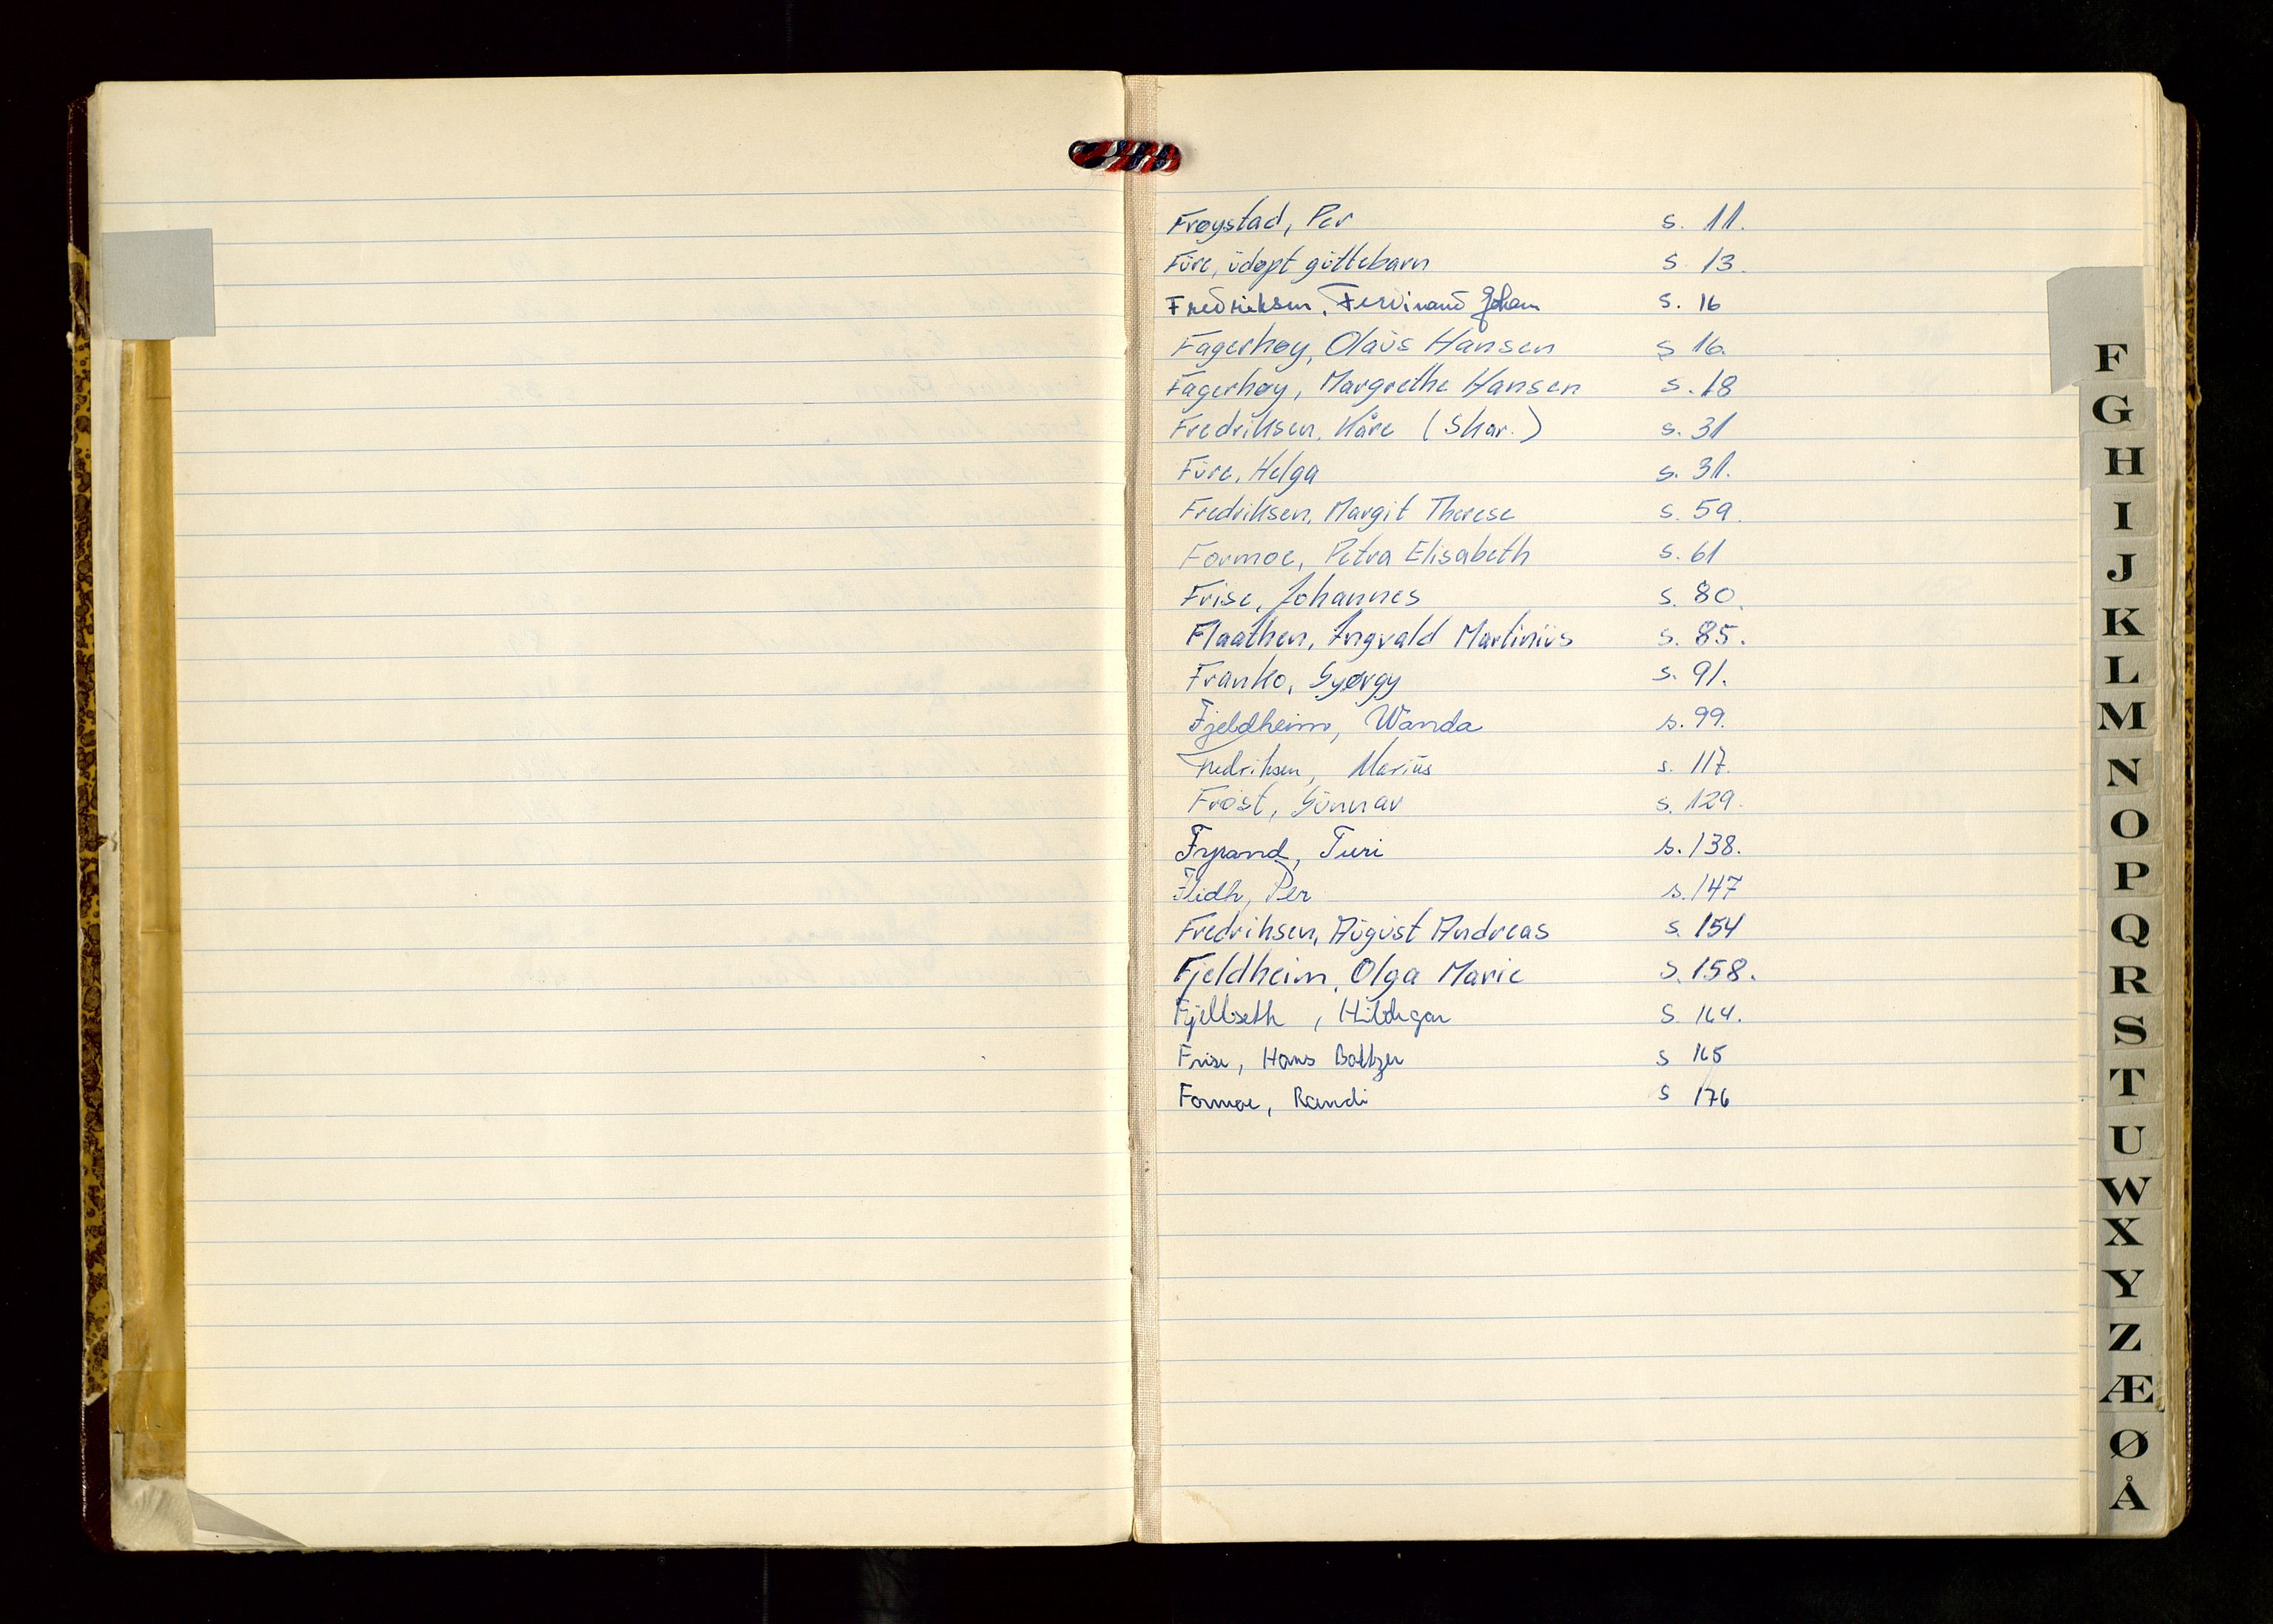 Frøystad, Per s. 11.
Fure, udøpt guttebarn s. 13.
Fredriksen, Ferdinand Johan s. 16
Fagerhøy, Olaus Hansen s 16.
Fagerhøy, Margrethe Hansen s. 18
Fredriksen, Kåre (Skar.) s. 31
Fure, Helga s. 31.
Fredriksen, Margit Therese s. 59.
Formoe, Petra Elisabeth s. 61
Frise, Johannes s. 80.
Flaathen, Ingvald Martinius s. 85.
Franko, György s. 91.
Fjeldheim, Wanda s. 99.
Fredriksen, Marius s. 117.
Frost, Gunnar s. 129.
Turi s. 138.
Per s. 147
Fredriksen, August Andreas s. 154
Fjeldheim, Olga Marie s. 158.
Fjellseth, s. 164.
Frise, Hans Baltzer s 165
Formoe, Randi s 176
F
G
H
I
J
K
L
M
N
O
P
Q
R
S
T
U
W
X
Y
Z
Æ
Ø
Å